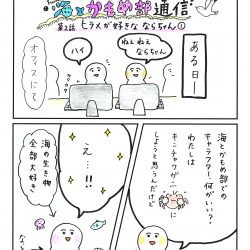 海とかもめ部通信
第2話 ヒラメが好きな ならちゃん①
ある日ー
ねぇねぇ
ならちゃん
ハイ
オフィスにて
海とかもめ部での
キャラクター、何がいい?
わたしは
キンチャクガニに
しようと思うんだけど
え…!!
海の生き物
全部大好き